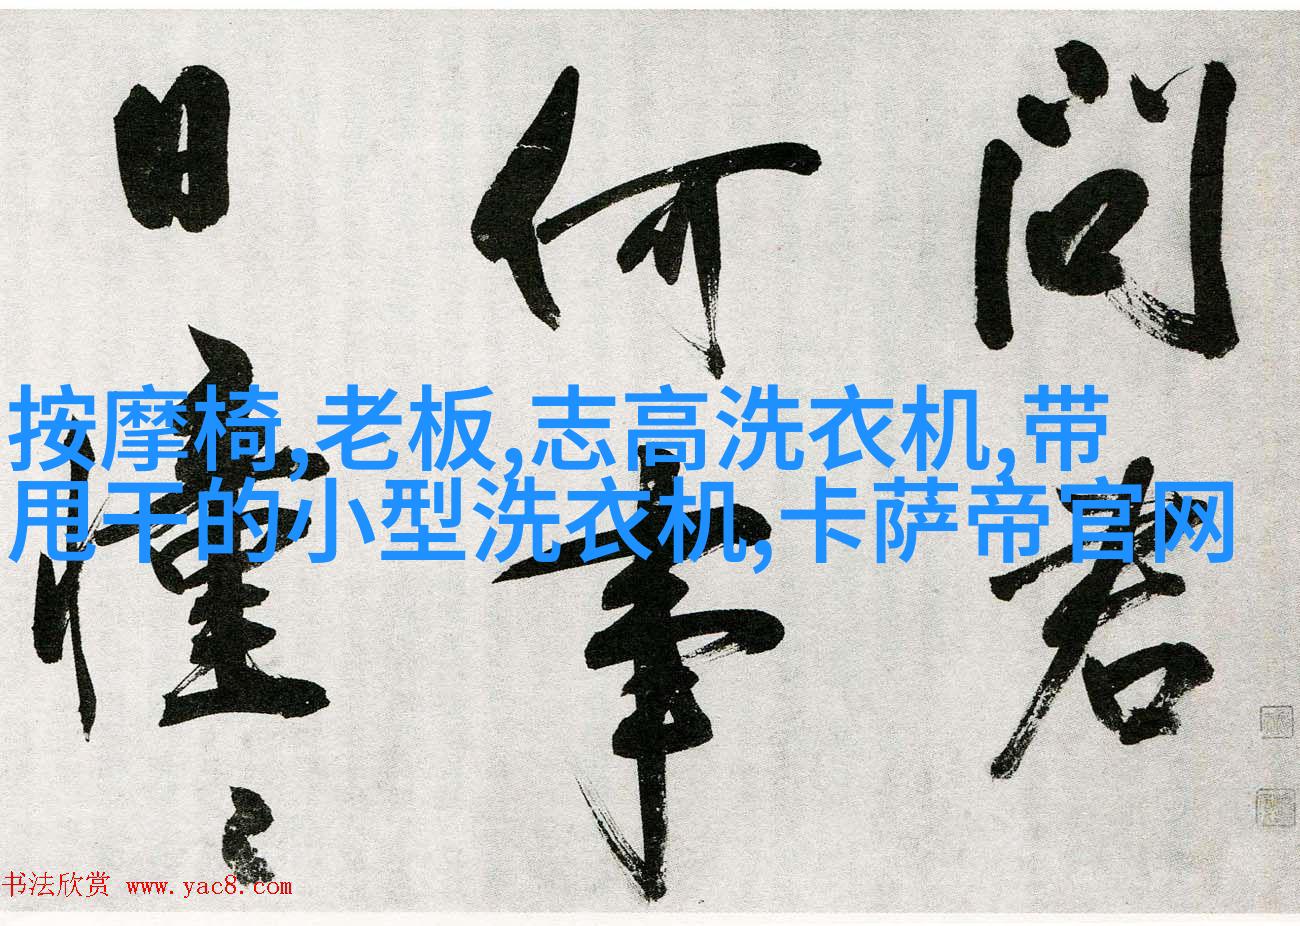 问君
何事
日憧〻
按摩椅,老板,志高洗衣机,带
甩干的小型洗衣机,卡萨帝官网
书法欣赏 www.yac8.com